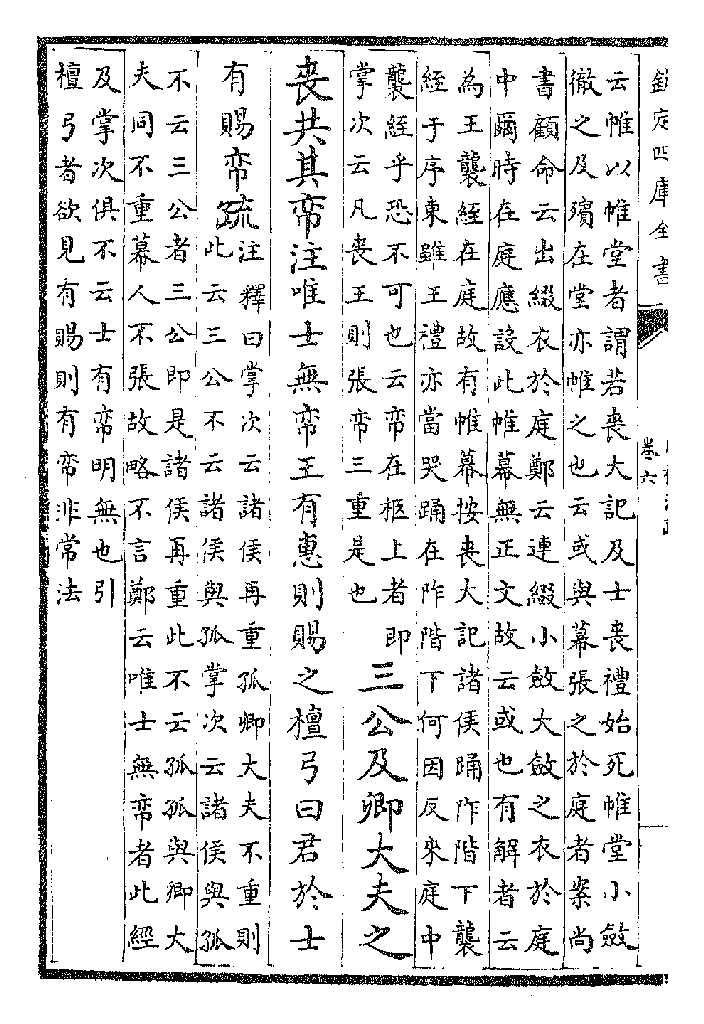 欽定四庫全書
卷六
云帷以帷堂者謂若喪大記及士喪禮始死帷堂小斂
徹之及殯在堂亦帷之也云或與幕張之於庭者案尚
書顧命云出綴衣於庭鄭云連綴小斂大斂之衣於庭
中爾時在庭應設此帷幕無正文故云或也有解者云
為王襲絰在庭故有帷幕按喪大記諸侯踊阼階下襲
絰于序東雖王禮亦當哭踊在阼階下何因反來庭中
襲絰乎恐不可也云帟在柩上者即
掌次云凡喪王則張帟三重是也
三公及卿大夫之
喪共其帟注唯士無帟王有惠則賜之檀弓曰君於士
有賜帟疏
注釋曰掌次云諸侯再重孤卿大夫不重則
此云三公不云諸侯與孤掌次云諸侯與孤
不云三公者三公即是諸侯再重此不云孤孤與卿大
夫同不重幕人不張故略不言鄭云唯士無帟者此經
及掌次俱不云士有帟明無也引
檀弓者欲見有賜則有帟非常法